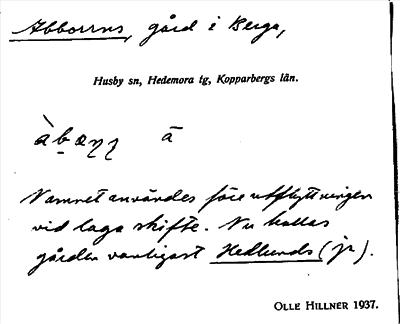 Abborrns, gård i Berga,
Husby sn, Hedemora tg, Kopparbergs län.
ā
Namnet användes före utflyttningen
vid laga skifte. Nu kallas
gården vanligast Hedlunds (jr).
OLLE HILLNER 1937.